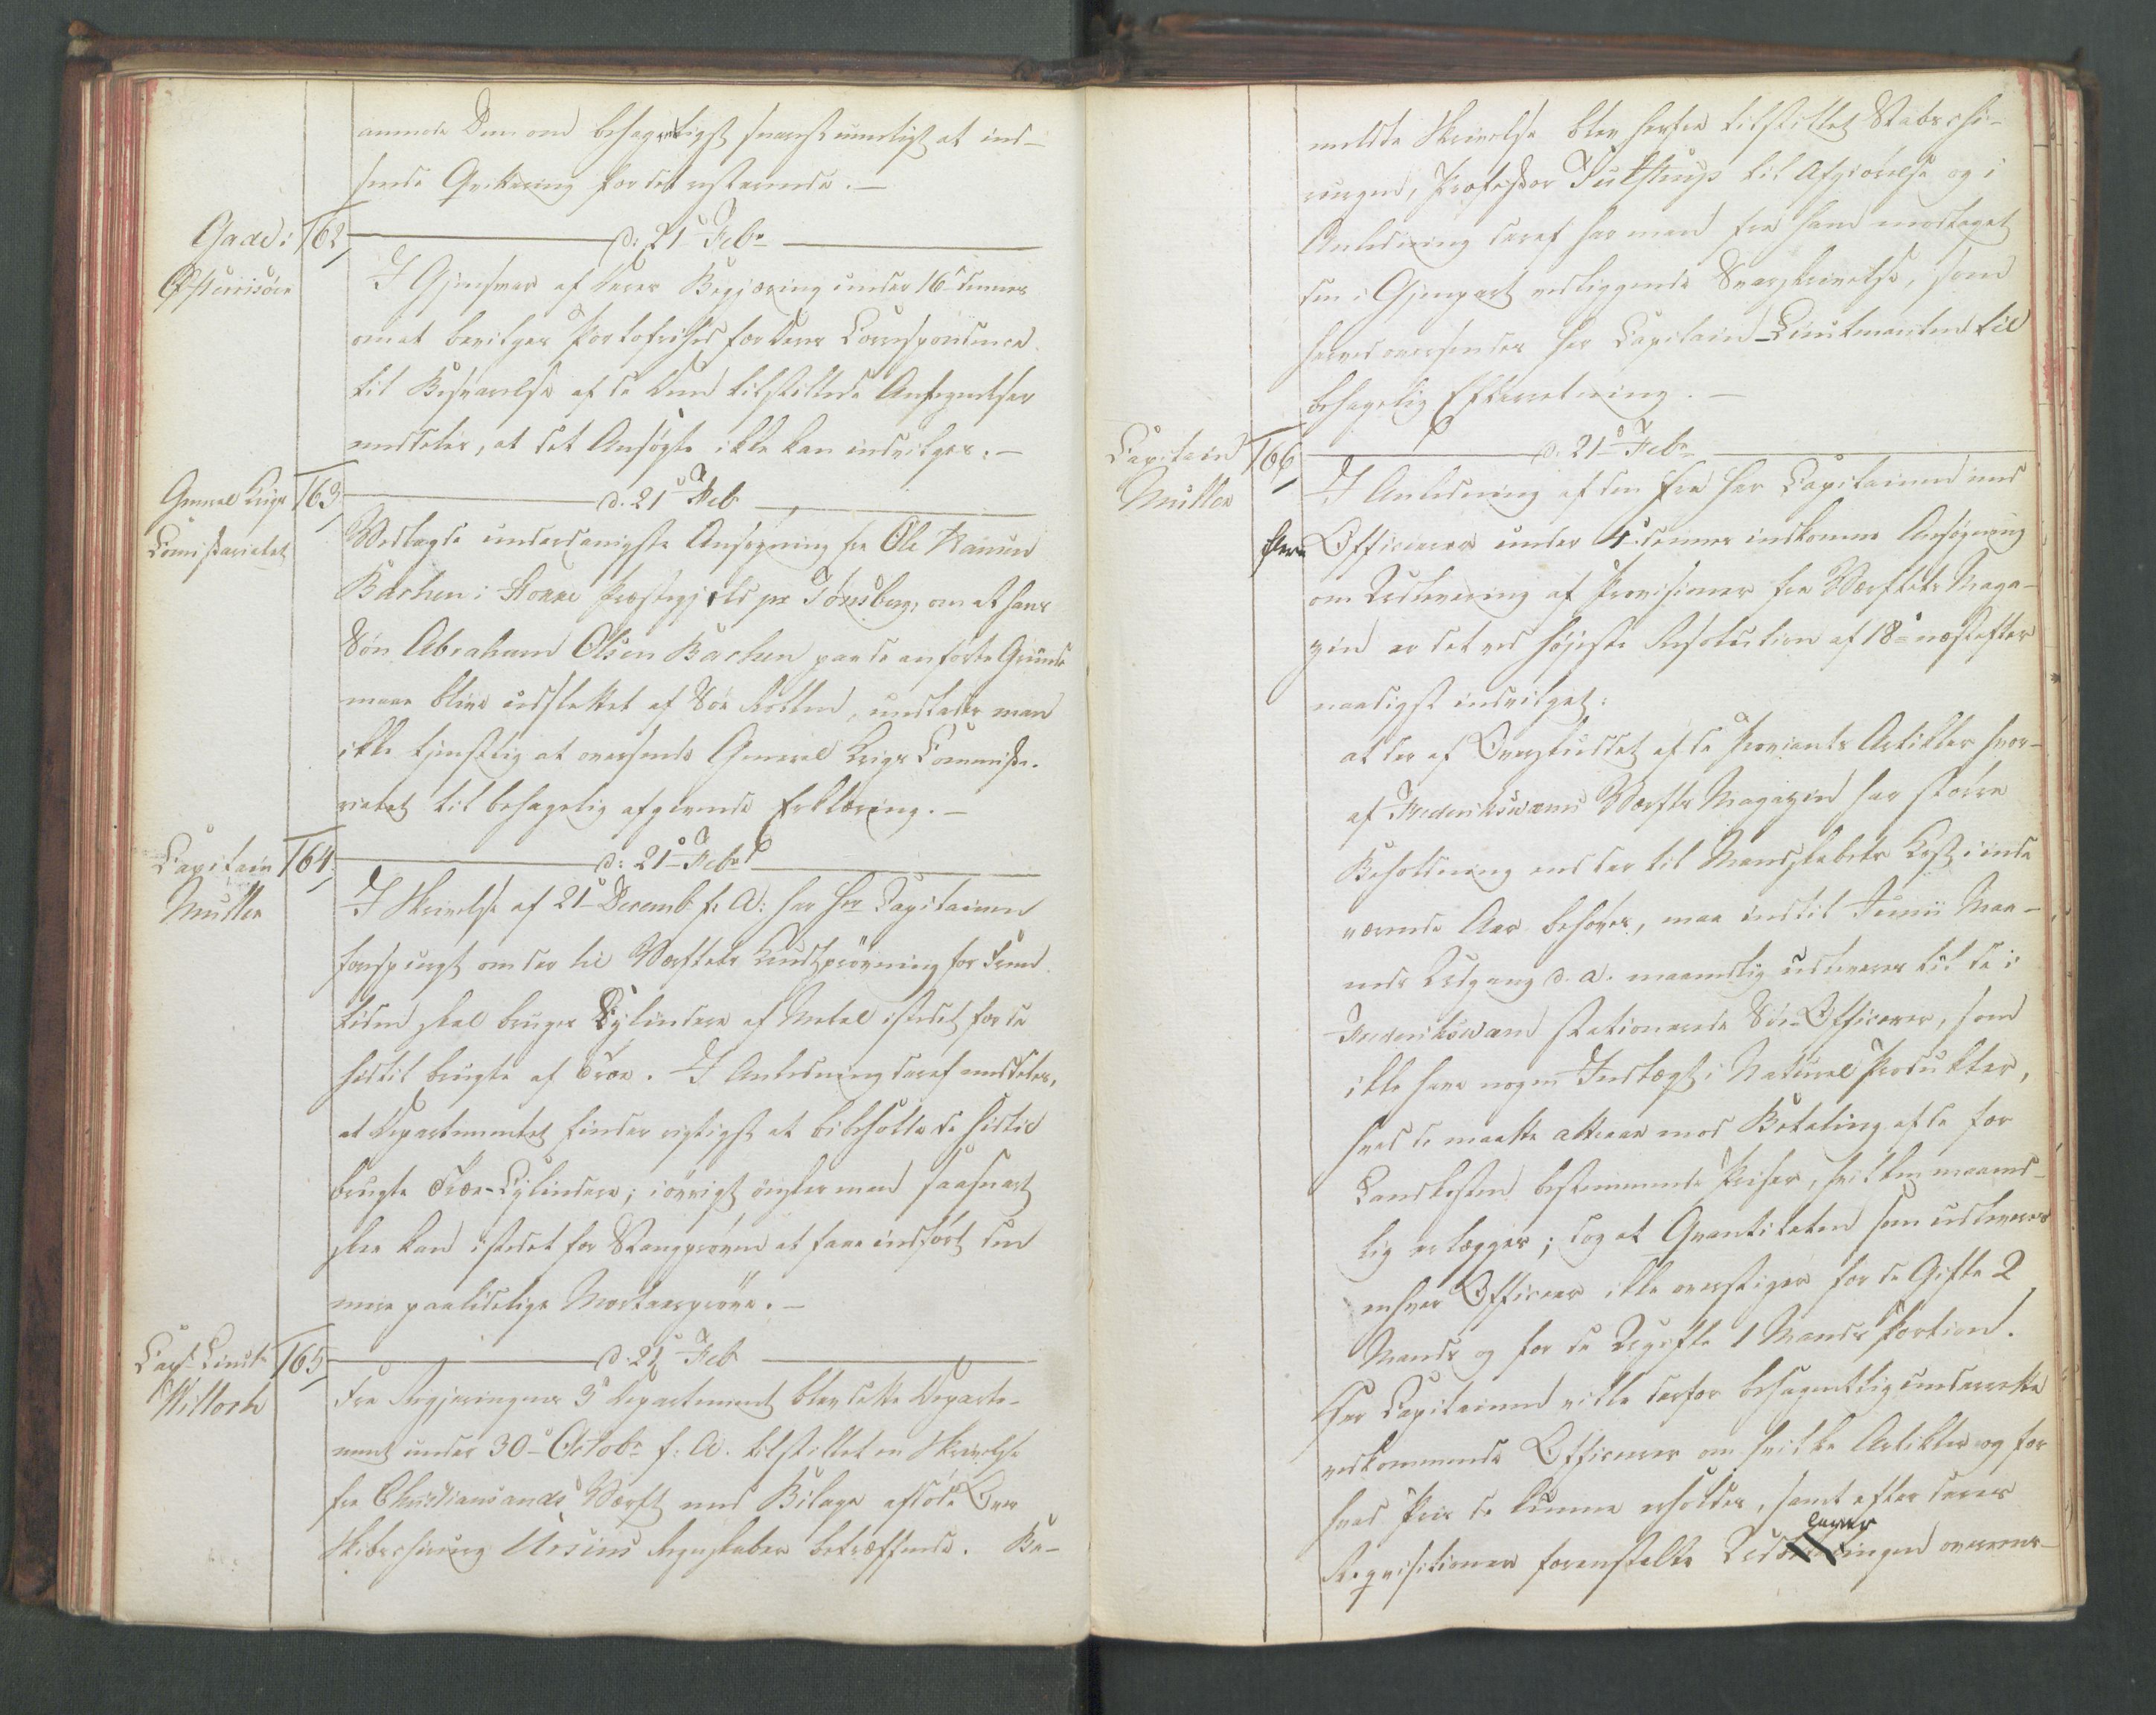 anmode Dem om behageligst snarest mueligst at ind-
sende Qvittering for det resterende.-
Gade i 162 d: 21 Feb.
Østerrisöer I Gjensvar af Deres Begjæring under 16 dennes
om at bevilges Portofrihed for Deres Correspondence
til Besvarelse af de Dem tilstillede Anliggender
meddeles, at det Ansøgte ikke kan indvilges.-
General Krigs 163 d. 21 Feb
Comissariatet Vedlagde underdanigste Ansøgning fra Ole
Bachen i Præstegjeld pr Tönsberg, om at hans
Sön Abraham Olsen Bachen paa de anförte Grunde
maae blive udslettet af Söe Rollen, undlader man
ikke tjenstlig at oversende General Krigs Commissa-
riatet til behagelig afgivende Erklæring.-
Capitain 164 d: 21 Febr
Müller I Skrivelse af 21 Decemb f: A: har Hr Capitainen
forespurgt om der til Værftets Krudtprövning for Frem-
tiden skal bruges Cylindere af Metal istedet for de
hidtil brugte af Træe. I Anledning deraf meddeles,
at Departementet finder rigtigst at bibeholde de hidtil
brugte Træe-Cylindere; iövrigt önsker man saasnart
skee kan istedet for Stangpröven at faae indfört den
mere paalidelige Mortaarpröve.-
Capt. Lieut. 165 d. 21 Feb
Willoch Fra Regjeringens 3 Departement blev dette Departe-
ment under 30 Octobr f: A. tilstillet en Skrivelse
fra Christiansands Værft med Bilage afdöde Over
Skibschirurg Ursins Regnskaber betræffende. Be-
meldte Skrivelse blev herfra tilstillet Stabschi-
rurgen, Professor Tulstrup til Afgiörelse og i
Anledning deraf har man fra ham modtaget
den i Gjenpart vedliggende Svarskrivelse, som
herved oversendes Hr Capitain-Lieutenanten til
behagelig Efterretning.-
Capitain 166 d. 21 Feb.
Müller I Anledning af den fra Hr Capitainen med
flere Officierer under 4 dennes indkomne Ansögning
om Udlevering af Provisioner fra Værftets Maga-
zin er det ved höjeste Resolution af 18 næstefter
naadigst indvilget:
at der af Overskuddet af de Proviants Artikler hvor-
af Frederiksværns Værfts Magazin har större
Beholdning end der til Mandskabets Kost i inde
værende Aar behöves, maa indtil Junii Maa-
neds Udgang d. A. maanedlig udleveres til de i
Frederiksværn stationerede Söe-Officerer, som
ikke have nogen Indtægt i Natural Produkter,
hvad de maatte attraae mod Betaling af de for
Landkosten bestemmende Priser, hvilken maaned-
lig erlægges; dog at Qvantiteten som udleveres
enhver Officeer ikke overstiger for de Gifte 2
Mands og for de Ugifte 1 Mands Portion.
Hr Capitainen ville derfor behagentlig underrette
vedkommende Officerer om hvilke Artikler og for
hvad Pris de kunne erholdes, samt efter deres
lever
Reqvisitioner foranstalte Udleveringen overeens-